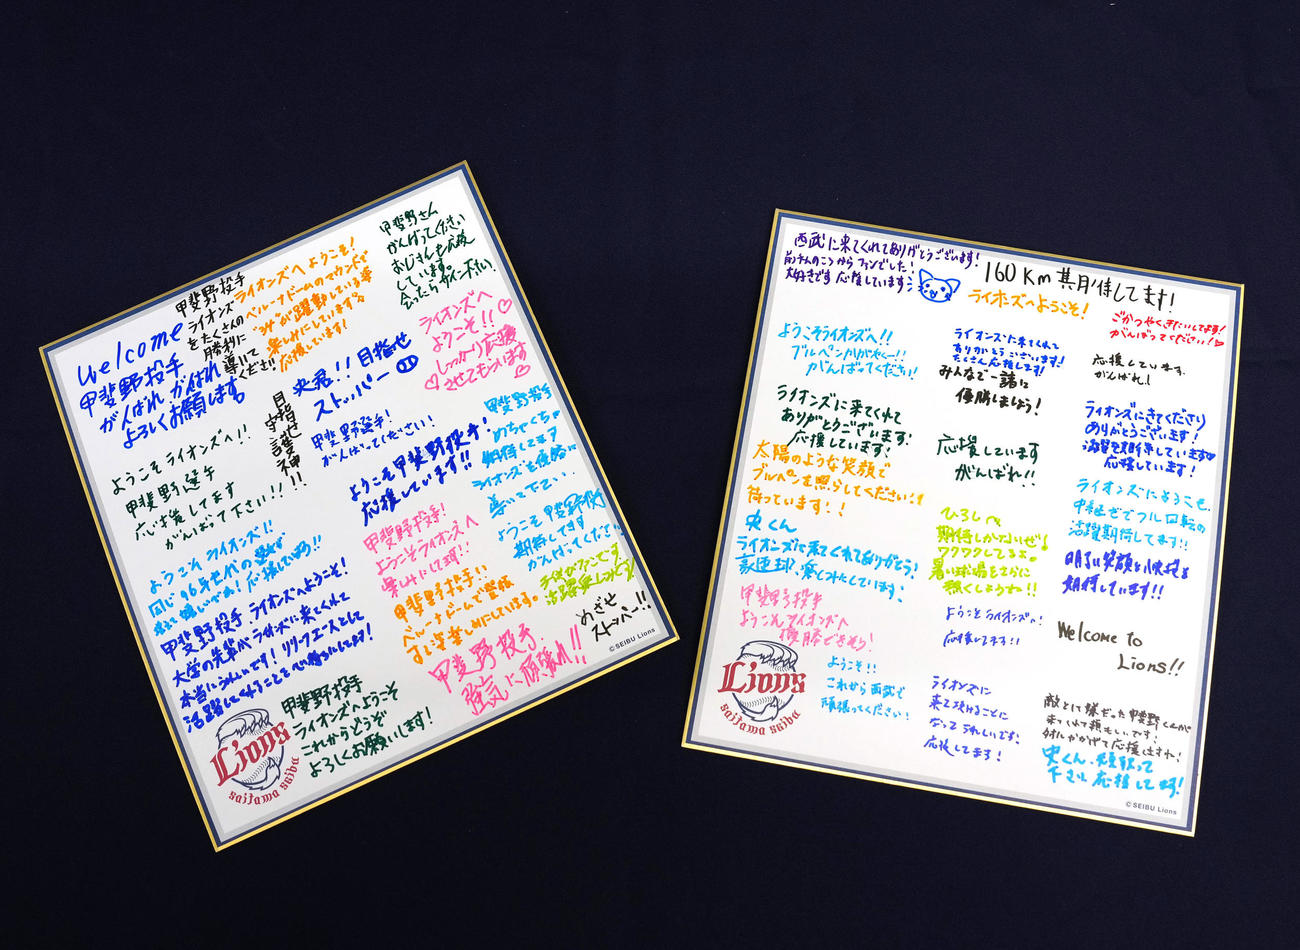 甲斐野さん
がんばってください
おじさんも応援
しています。
会ったらサイン下さい!
甲斐野投手
ライオンズ
をたくさんの
勝利に
導いて
ください!!
ライオンズへようこそ!
ベルーナドームのマウンドで
"み"が躍動している姿
楽しみにしています!
応援しています!
welcome
甲斐野投手
がんばれ がんばれ
よろしくお願します
ライオンズへ
ようこそ!!
しっかり応援
させてもらいます
央君!!目指せ
ストッパー
目指せ
守護神!!
甲斐野選手!
がんばってください!
ようこそ甲斐野投手!
応援しています!!
甲斐野投手
めちゃくちゃ
期待してます
ライオンズを優勝に
導いて下さい
ようこそライオンズへ!!
甲斐野選手
応援してます
がんばって下さい!!
ようこそライオンズ!!
同じ96年世代の
応援しています!!
甲斐野投手!
ようこそライオンズへ
楽しみにしてます!!
ようこそ甲斐野投手
期待してます
がんばってください
甲斐野投手、ライオンズへようこそ!
大学の先輩がライオンズに来てくれて
本当にうれしいです!リリーフエースとして
活躍してくれることを心待ちにしてます!
甲斐野投手!!
ベルーナドームで登板
する姿楽しみにしています。
子供がファンです
活躍楽しみです
めざせ
ストッパー!!
甲斐野投手
強気に頑張れ!!
甲斐野投手
ライオンズへようこそ
これからどうぞ
よろしくお願いします!
Lions
saitama seibu
©SEIBU Lions
西武に来てくれてありがとうございます!
大好きです 応援しています!
160Km 期待してます!
ライオンズへようこそ!
ごかつやくきたいしてます!
がんばってください!
ようこそライオンズへ!!
ブルペンかがやく〜!!
がんばってください!
ライオンズに来てくれて
ありがとうございます!
たくさん応援します!
みんなで一諸に
優勝しましょう!
応援しています。
がんばれ!
ライオンズに来てくれて
ありがとうございます!
応援しています!
応援しています
がんばれ!!
ライオンズにきてくださり
ありがとうございます!
活躍を期待しています
応援しています!
太陽のような笑顔で
ブルペンを照らしてください!!
待っています!!
ライオンズにようこそ
中継ぎでフル回転の
活躍期待してます!!
央くん
ライオンズに来てくれてありがとう!
豪速球、楽しみにしています!
ひろしへ
期待しかないぜ!
ワクワクしてるよ。
暑い球場をさらに
熱くしようね!!
明るい笑顔と快投を
期待しています!!
甲斐野投手
ようこそライオンズへ
優勝できそう!
ようこそライオンズへ!
応援してます!!
Welcome to
Lions!!
ようこそ!!
これから西武で
頑張ってください!
ライオンズに
来て頂けることに
なってうれしいです!
応援してます!
敵として嫌だった甲斐野くんが
来てくれて頼もしいです!
タオルかかげて応援しますね!
央くん、頑張って
下さい 応援してます!
Lions
saitama seibu
©SEIBU Lions